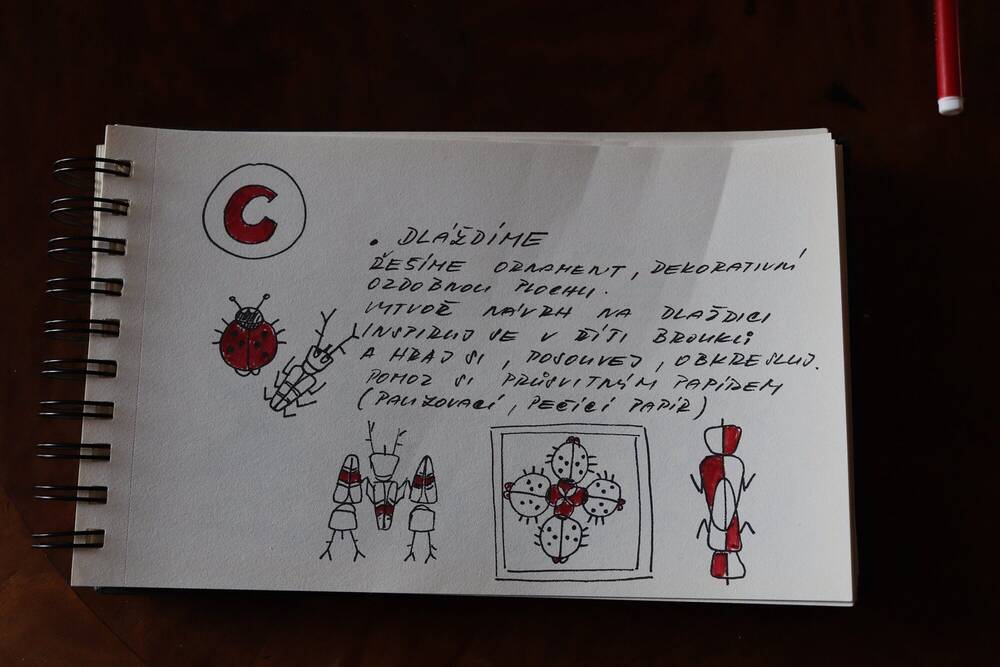 C
• DLÁŽDÍME
ŘEŠÍME ORNAMENT, DEKORATIVNÍ
OZDOBNOU PLOCHU.
VYTVOŘ NÁVRH NA DLAŽDICI
INSPIRUJ SE V ŘÍŠI BROUKŮ
A HRAJ SI, POSOUVEJ, OBKRESLUJ.
POMOZ SI PRŮSVITNÝM PAPÍREM
(PAUZOVACÍ, PEČÍCÍ PAPÍR)